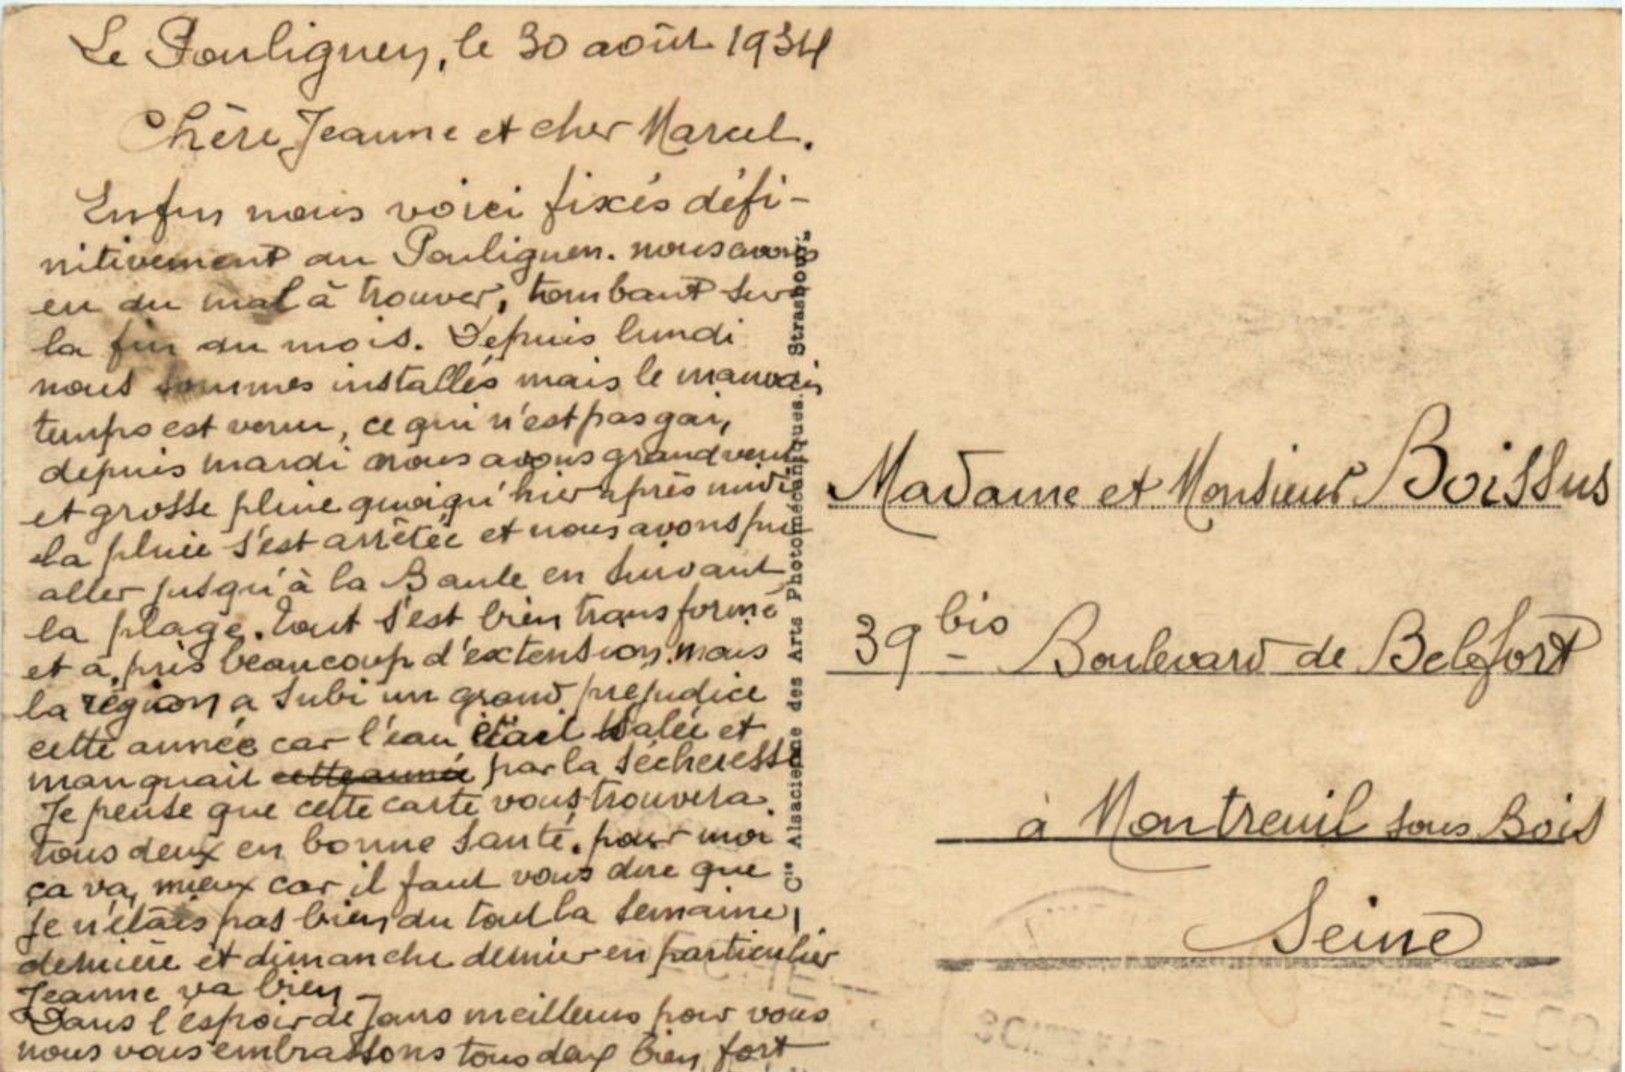 Le Pouliguen, le 30 août 1934
Chère Jeanne et cher Marcel.
Enfin nous voici fixés défi-
nitivement au Pouliguen. nous avons
eu du mal à trouver, tombant sur
la fin du mois. Depuis lundi
nous sommes installés mais le mauvais
temps est venu, ce qui n'est pas gai,
depuis mardi nous avons grand vent
et grosse pluie quoiqu'hier après midi
la pluie s'est arrêtée et nous avons pu
aller jusqu'à la Baule en suivant
la plage. tout s'est bien transformé
et a pris beaucoup d'extension, mais
la région a subi un grand préjudice
cette année car l'eau était salée et
manquait cette année par la sécheresse
Je pense que cette carte vous trouvera
tous deux en bonne santé. pour moi
ça va, mieux car il faut vous dire que
je n'étais pas bien du tout la semaine
dernière et dimanche dernier en particulier
Jeanne va bien -
Dans l'espoir de jours meilleurs pour vous
nous vous embrassons tous deux bien fort
Cie Alsacienne des Arts Photomécaniques. Strasbourg.
Madame et Monsieur Boissus
39 bis - Boulevard de Belfort
à Montreuil sous Bois
Seine